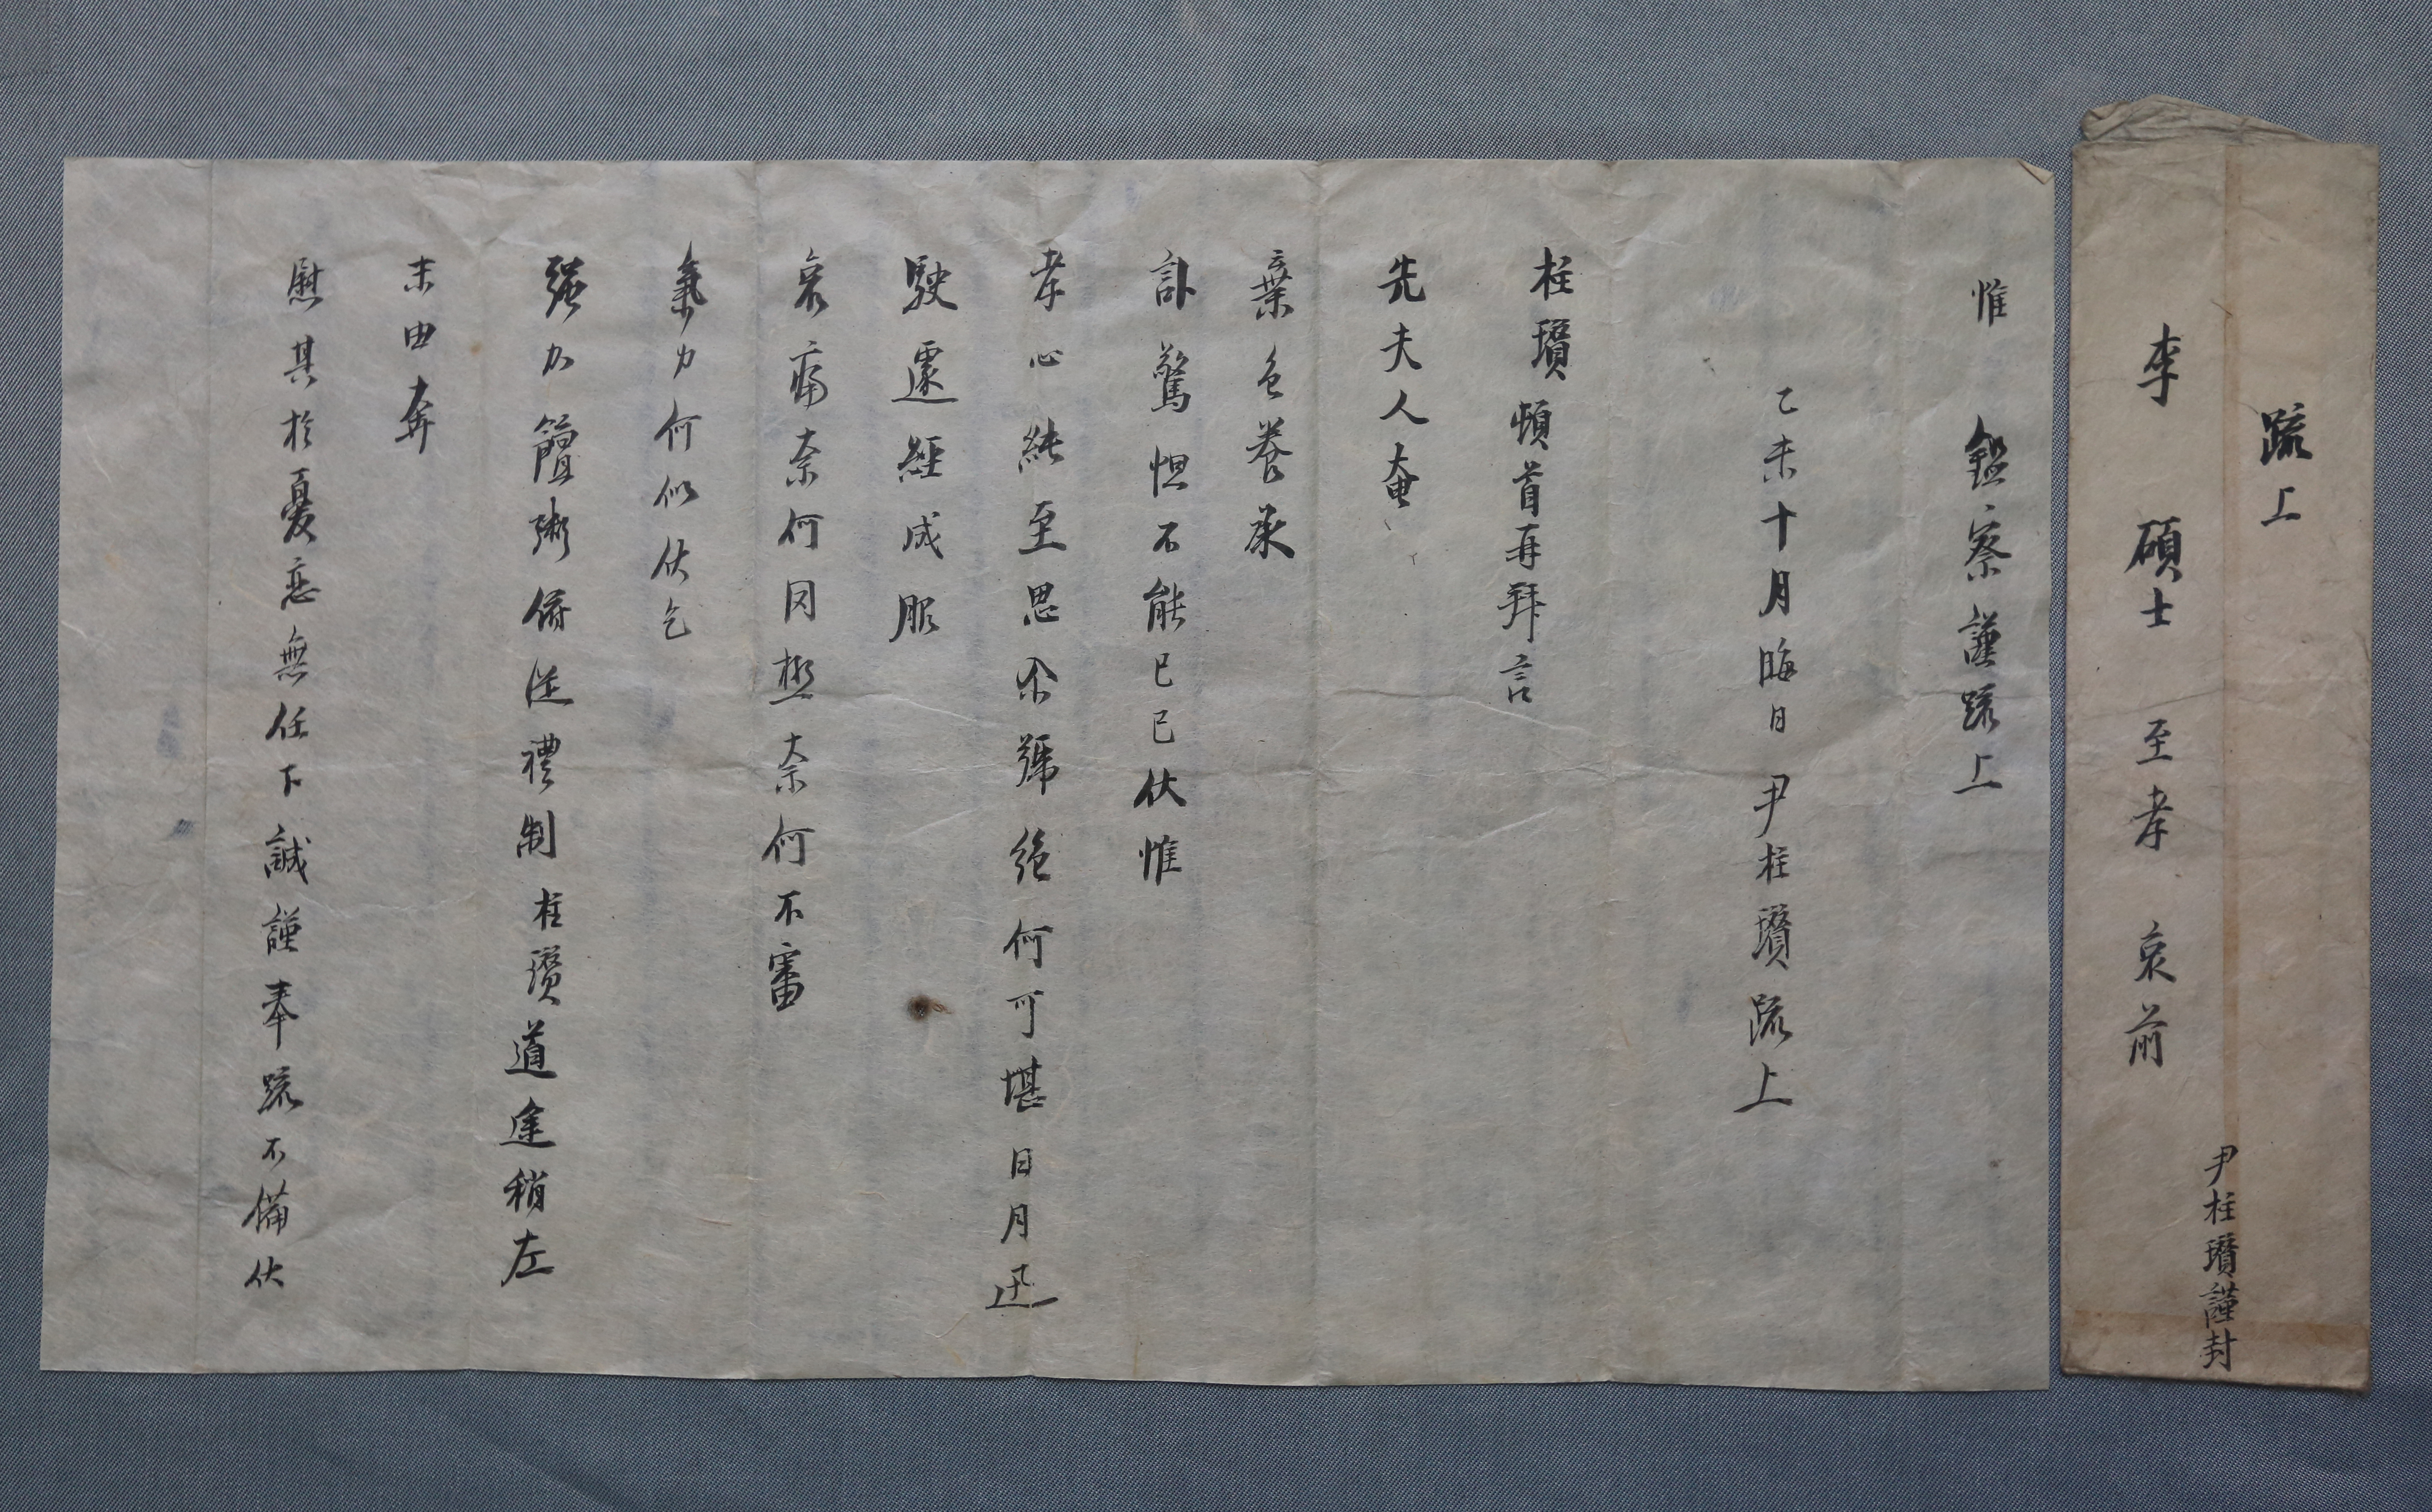 疏上
李 碩士 至孝 哀前
尹柱瓚謹封
惟 鑑察謹疏上
乙未十月晦日 尹柱瓚疏上
柱瓚頓首再拜言
先夫人奄
棄色養承
訃驚怛不能已已伏惟
孝心純至思慕號絶何可堪日月迅
駛遽經成服
哀痛奈何罔極奈何不審
氣力何似伏乞
强加饘粥俯從禮制柱瓚道途稍左
末由奔
慰其於憂恋無任下誠謹奉疏不備伏